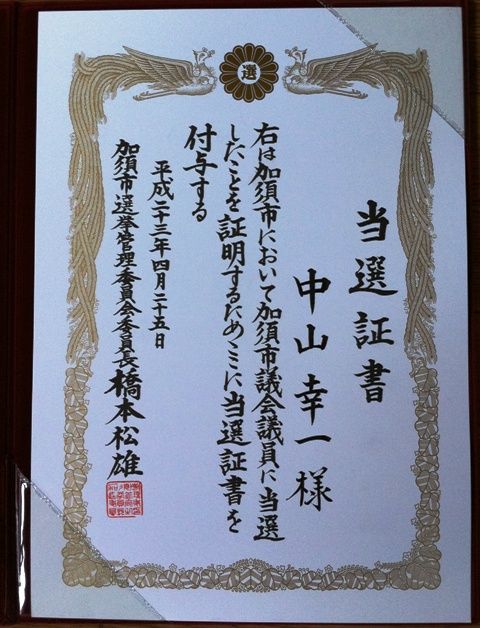 選
当選証書
中山幸一様
右は加須市において加須市議会議員に当選
したことを証明するためここに当選証書を
付与する
平成二十三年四月二十五日
加須市選挙管理委員会委員長 橋本松雄